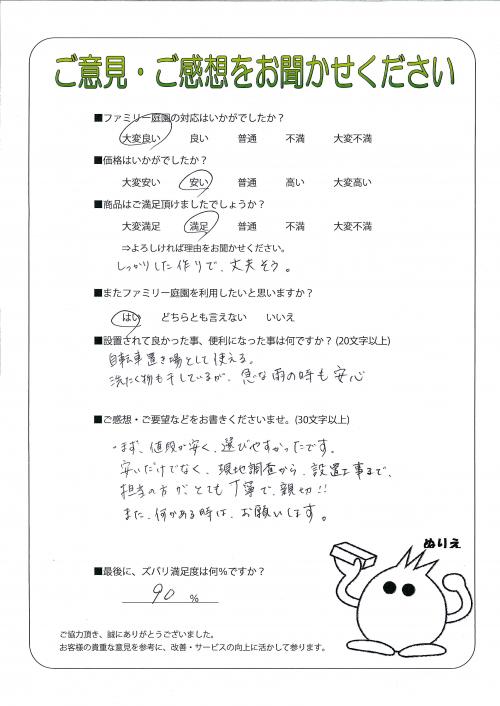 ご意見・ご感想をお聞かせください
■ファミリー庭園の対応はいかがでしたか？
大変良い 良い 普通 不満 大変不満
■価格はいかがでしたか？
大変安い 安い 普通 高い 大変高い
■商品はご満足頂けましたでしょうか？
大変満足 満足 普通 不満 大変不満
⇒よろしければ理由をお聞かせください。
しっかりした作りで、丈夫そう。
■またファミリー庭園を利用したいと思いますか？
はい どちらとも言えない いいえ
■設置されて良かった事、便利になった事は何ですか？(20文字以上)
自転車置き場として使える。
洗たく物も干しているが、急な雨の時も安心
■ご感想・ご要望などをお書きくださいませ。(30文字以上)
・まず、値段が安く、選びやすかったです。
安いだけでなく、現地調査から、設置工事まで、
担当の方が、とても丁寧で、親切!!
また、何かある時は、お願いします。
ぬりえ
■最後に、ズバリ満足度は何%ですか？
90 %
ご協力頂き、誠にありがとうございました。
お客様の貴重な意見を参考に、改善・サービスの向上に活かして参ります。